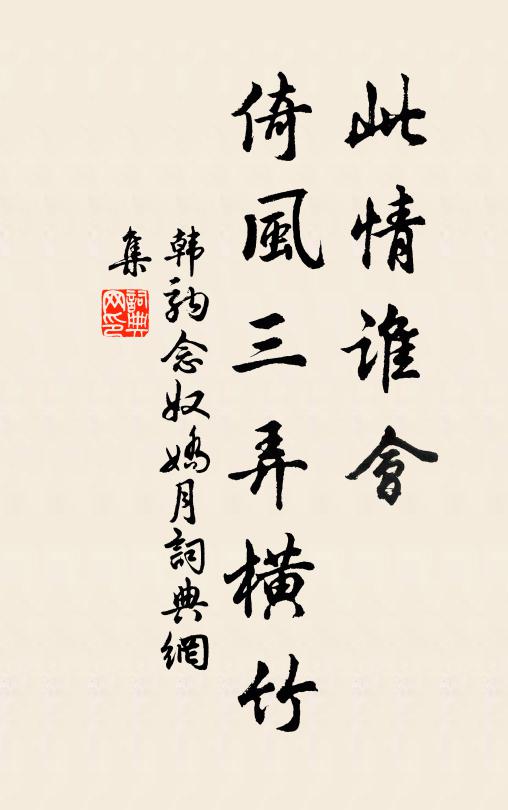 此情誰會
倚風三弄橫竹
韩駒念奴嬌月詞典網
集
詞典网印